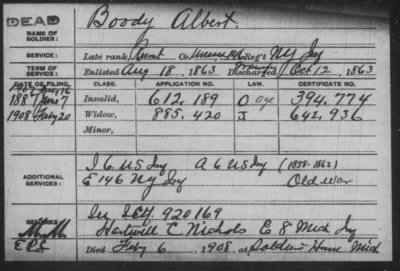 DEAD
Boody Albert.
NAME OF SOLDIER:
SERVICE: Late rank, Co. 146 Reg't NY Inf
TERM OF SERVICE: Enlisted Aug 18, 1863 Discharged Oct 12, 1863
DATE OF FILING. CLASS. APPLICATION NO. LAW. CERTIFICATE NO.
Invalid, 612,189 O age 394,774
1887 June 7
1908 Feby 20 Widow, 885,420 J 642,936
Minor,
ADDITIONAL SERVICES:
I C. US Inf A 6 US Inf (1858-1862)
E 146 NY Inf Old War
REMARKS:
920169
Hartwell C. Nichols E 8 Mich Inf
Died Feby 6, 1908, at Soldiers Home Mich